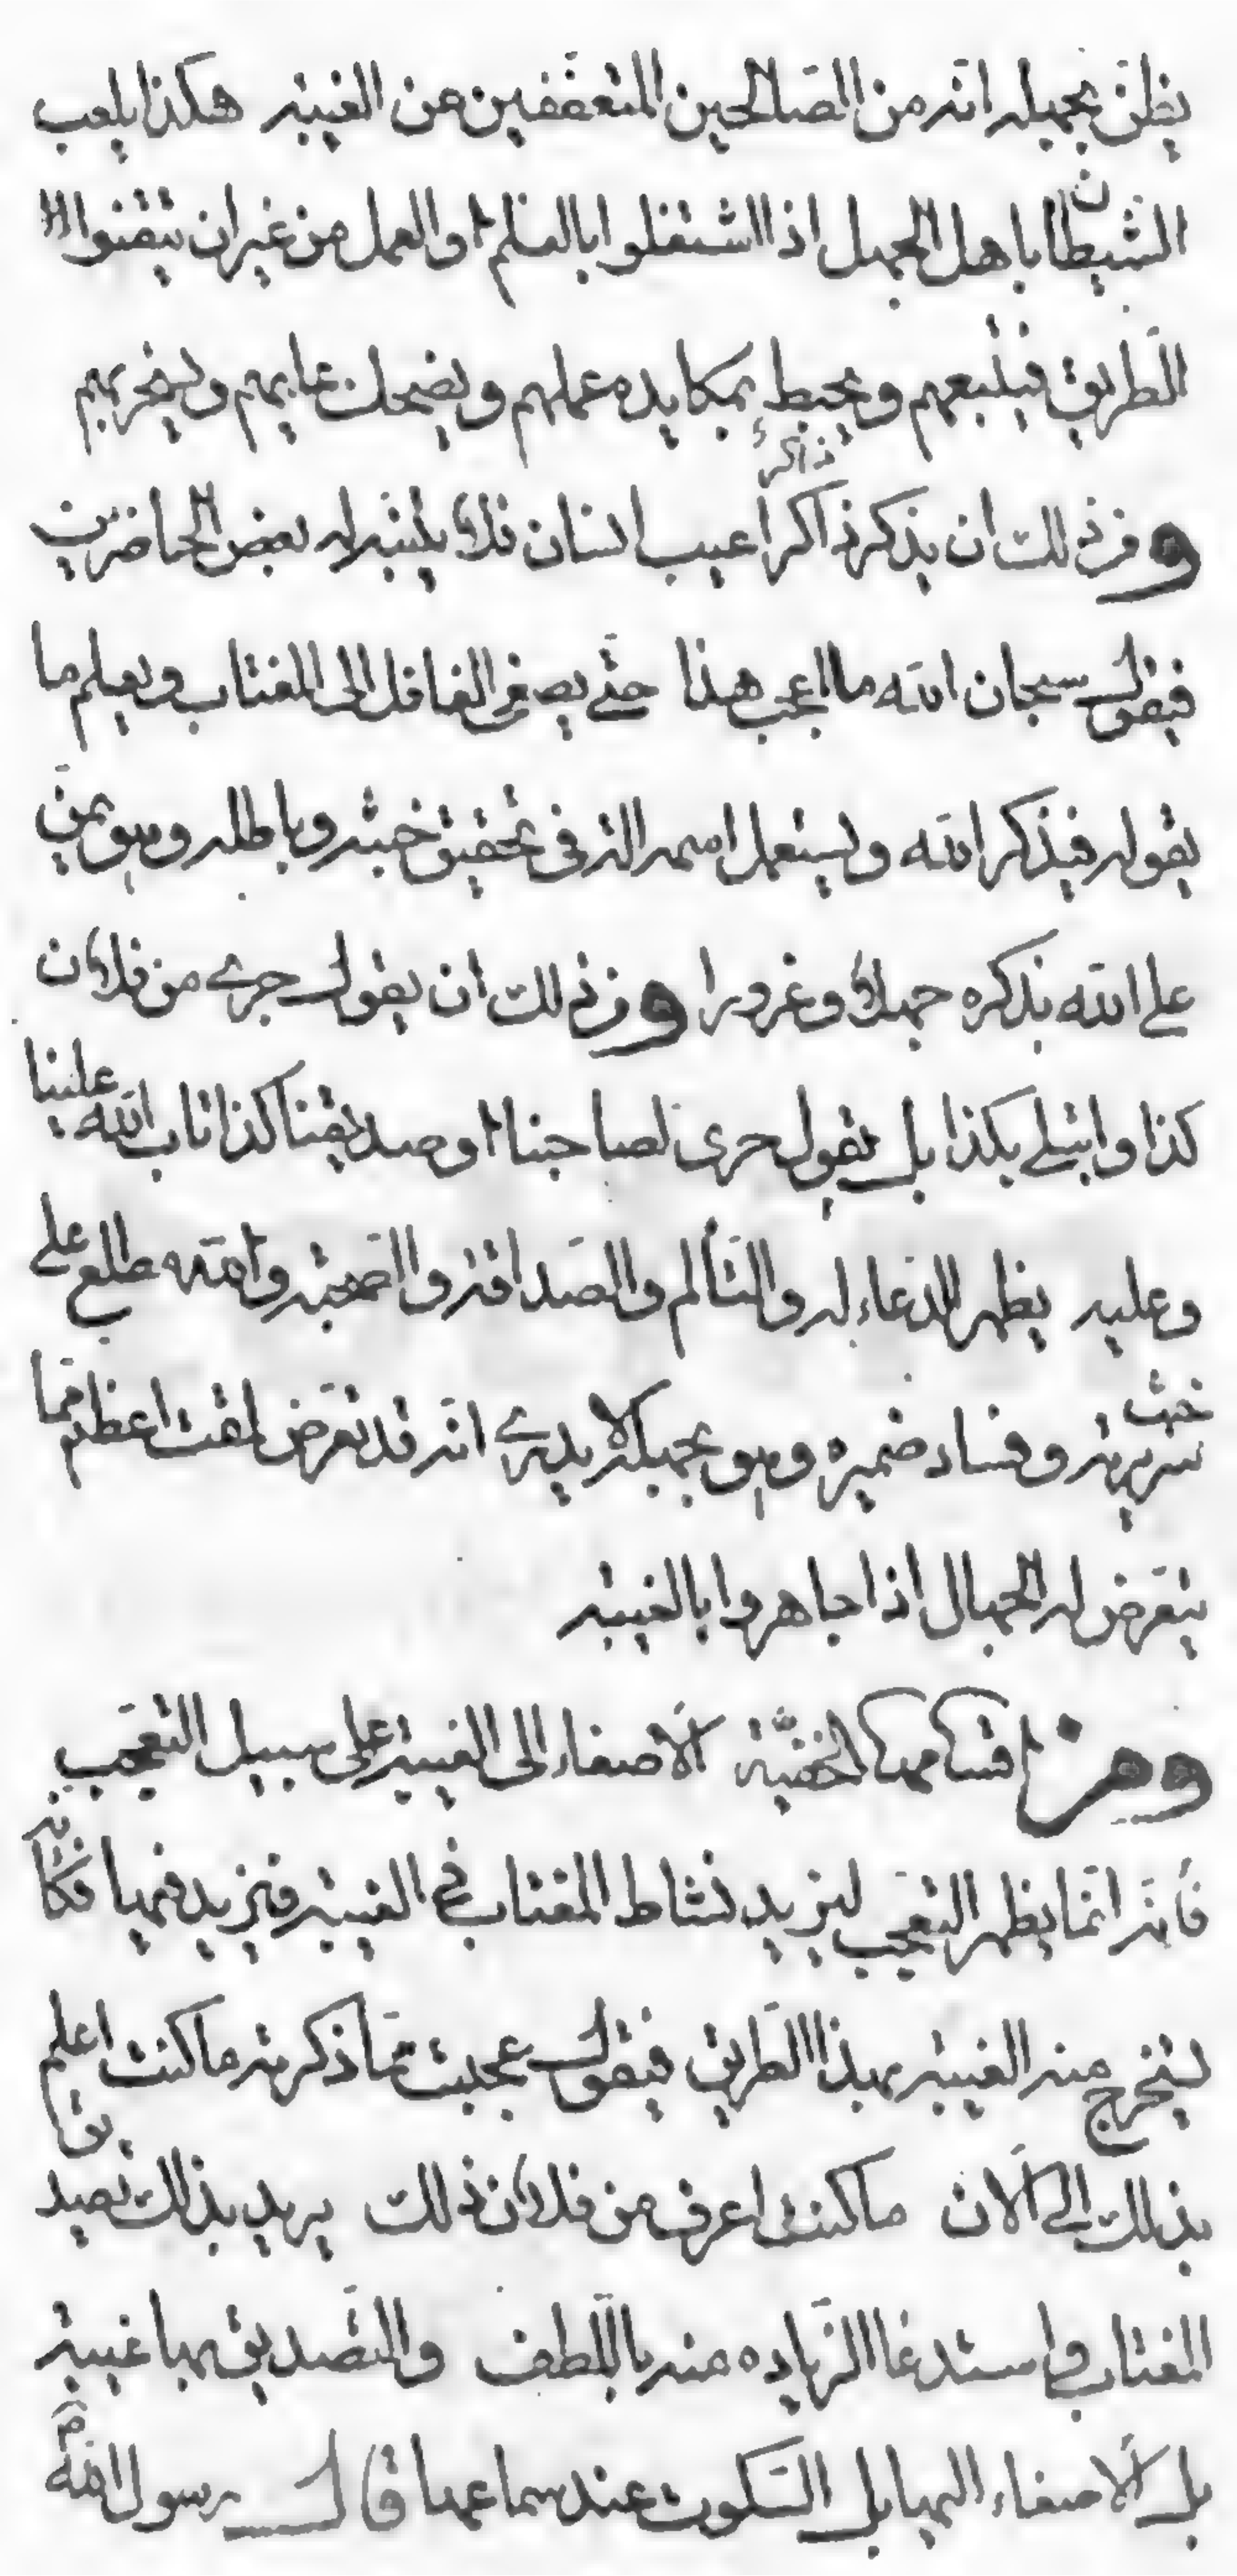 يظنّ بجهله انّه من الصّالحين المتعفّفين عن الغيبة هكذا يلعب
الشّيطان باهل الجهل اذا اشتغلوا بالعلم او العمل من غير ان يتقنوا
الطّريق فيتبعهم ويحيط بمكايده عملهم ويضحك عليهم ويسخر بهم
ومن ذلك ان يذكر ذاكرا ذاكر عيب انسان فلا يتنبه له بعض الحاضرين
فيقول سبحان الله ما اعجب هذا حتّى يصغى الغافل الى المغتاب ويعلم ما
يقوله فيذكر الله ويستعمل اسمه الة فى تحقيق خبثه وباطله وهو يمنّ
على الله بذكره جهلا وغرورا ومن ذلك ان يقول جرى من فلان
كذا وابتلى بكذا بل يقول جرى لصاحبنا او صديقنا كذا تاب الله علينا
وعليه يظهر الدّعاء له والتّألم والصّداقة والصّحبة والله مطلع على
خبث سريرته وفساد ضميره وهو بجهله لا يدرى انّه قد تعرّض لمقت اعظم ممّا
يتعرّض له الجهال اذا جاهروا بالغيبة
ومن اقسامها الخفيّة الاصغاء الى الغيبة على سبيل التعجّب
فأنه انّما يظهر التعجّب ليزيد نشاط المغتاب فى الغيبة فيزيد فيها فكأنه
يستخرج منه الغيبة بهذا الطّريق فيقول عجبت ممّا ذكرته ما كنت اعلم
بذلك الى الآن ما كنت اعرف من فلان ذلك يريد بذلك تصديق
المغتاب واستدعا الزّياده منه باللّطف والتّصديق بها غيبة
بل الاصغاء اليها بل السّكوت عند سماعها قال رسول الله ص